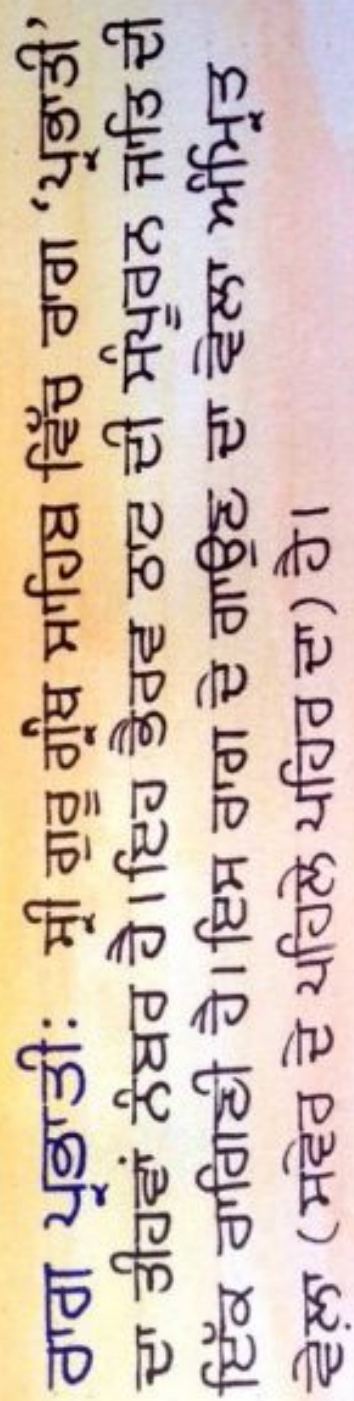 ਰਾਗ ਪ੍ਰੰਭਾਤੀ: ਸ੍ਰੀ ਗੁਰੂ ਗ੍ਰੰਥ ਸਾਹਿਬ ਵਿੱਚ ਰਾਗ 'ਪ੍ਰੰਭਾਤੀ'
ਦਾ ਤੀਹਵਾਂ ਨੰਬਰ ਹੈ। ਇਹ ਭੈਰਵ ਠਾਟ ਦੀ ਸੰਪੂਰਨ ਜਾਤਿ ਦੀ
ਇੱਕ ਰਾਗਣੀ ਹੈ। ਇਸ ਰਾਗ ਦੇ ਗਾਉਣ ਦਾ ਵੇਲਾ ਅੰਮ੍ਰਿਤ
ਵੇਲਾ (ਸਵੇਰ ਦੇ ਪਹਿਲੇ ਪਹਿਰ ਦਾ) ਹੈ।